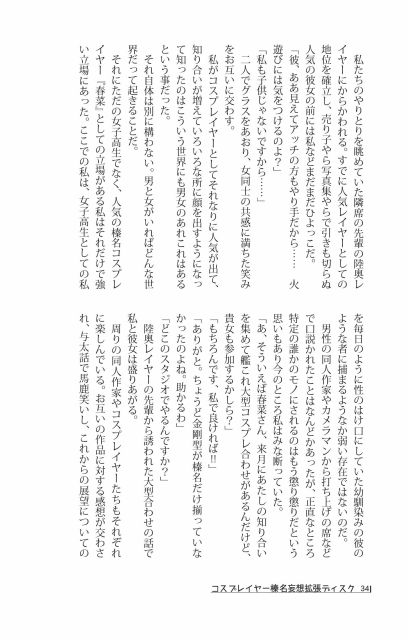 私たちのやりとりを眺めていた隣席の先輩の陸奥レ
イヤーにからかわれる。すでに人気レイヤーとしての
地位を確立し、売り子やら写真集やらで引きも切らぬ
人気の彼女の前には私などまだまだひよっこだ。
「彼、ああ見えてアッチの方もやり手だから……　火
遊びには気をつけるのよ？」
「私も子供じゃないですから……」
二人でグラスをあおり、女同士の共感に満ちた笑み
をお互いに交わす。
私がコスプレイヤーとしてそれなりに人気が出て、
知り合いが増えていろいろな所に顔を出すようになっ
て知ったのはこういう世界にも男女のあれこれはある
という事だった。
それ自体は別に構わない。男と女がいればどんな世
界だって起きることだ。
それにただの女子高生でなく、人気の榛名コスプレ
イヤー『春菜』としての立場がある私はそれだけで強
い立場にあった。ここでの私は、女子高生としての私
を毎日のように性のはけ口にしていた幼馴染みの彼の
ような者に捕まるようなか弱い存在ではないのだ。
男性の同人作家やカメラマンから打ち上げの席など
で口説かれたことはなんどかあったが、正直なところ
特定の誰かのモノにされるのはもう懲り懲りだという
思いもあり今のところ私はみな断っていた。
「あ、そういえば春菜さん、来月にあたしの知り合い
を集めて艦これ大型コスプレ合わせがあるんだけど、
貴女も参加するかしら？」
「もちろんです、私で良ければ‼」
「ありがと。ちょうど金剛型が榛名だけ揃っていな
かったのよね。助かるわ」
「どこのスタジオでやるんですか？」
陸奥レイヤーの先輩から誘われた大型合わせの話で
私と彼女は盛りあがる。
周りの同人作家やコスプレイヤーたちもそれぞれ
に楽しんでいる。お互いの作品に対する感想が交わさ
れ、与太話で馬鹿笑いし、これからの展望についての
コスプレイヤー榛名妄想拡張ディスク　34